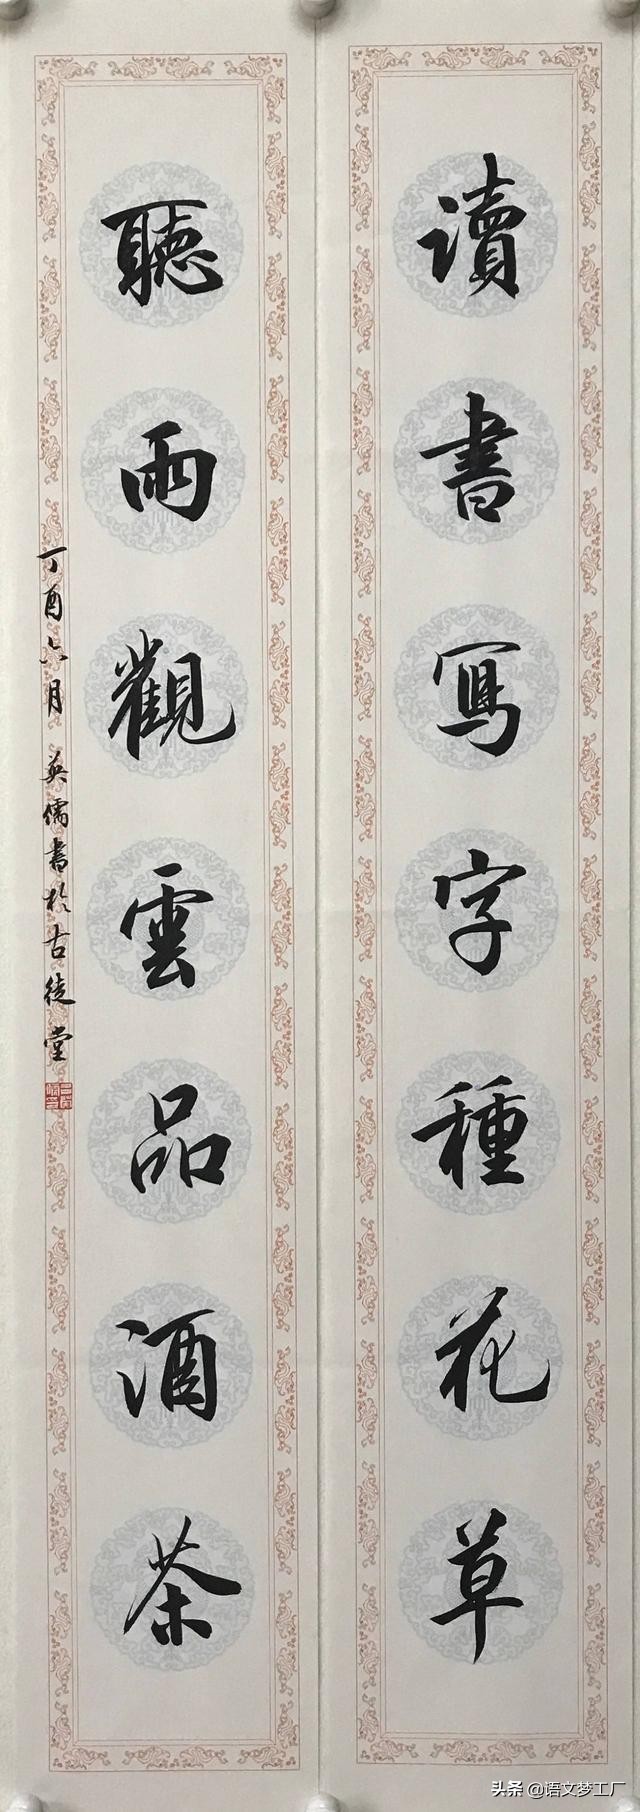 讀書寫字種花草
聽雨觀雲品酒茶
丁酉六月 英儒書於古徒堂
头条 @语文梦工厂